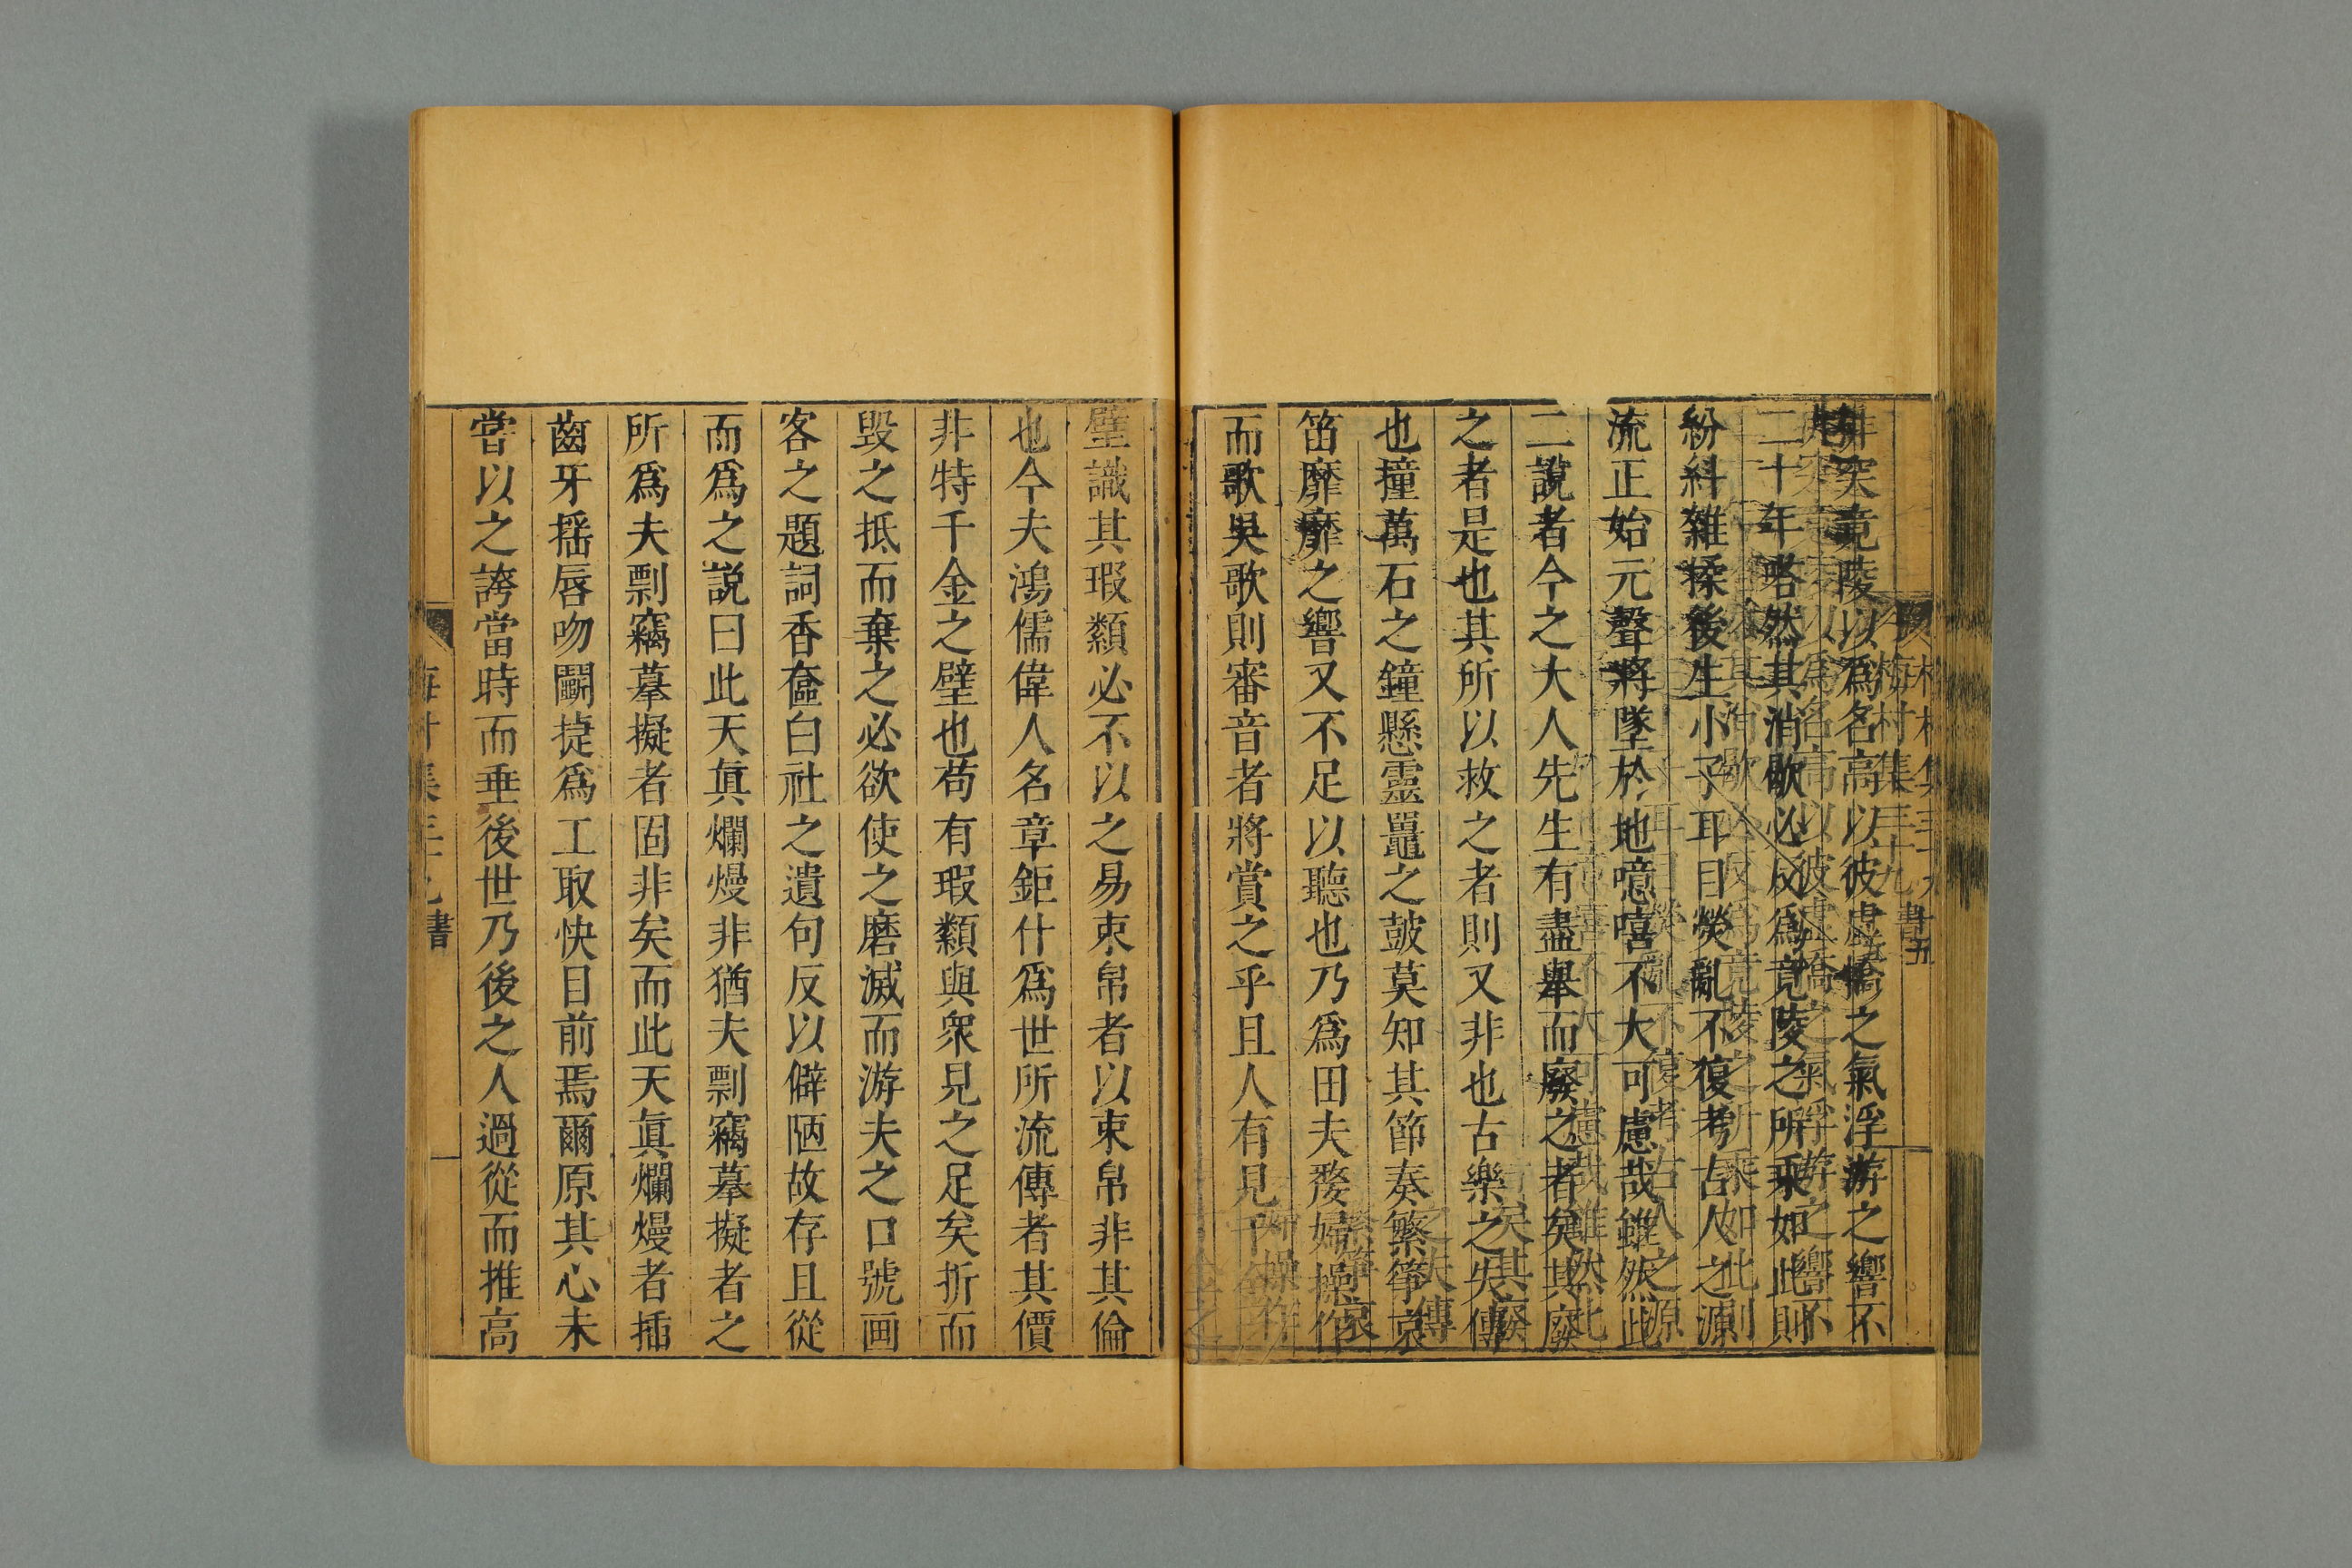 排突竟陵以爲名高以彼虛憍之氣浮游之響不
二十年嗒然其消歇必反爲竟陵之所乘如此則
紛糾雜揉後生小子耳目熒亂不復考古人之源
流正始元聲將墜於地噫嘻不大可慮哉雖然此
二說者今之大人先生有盡舉而廢之者矣其廢
之者是也其所以救之者則又非也古樂之失傳
也撞萬石之鐘懸靈鼉之鼓莫知其節奏繁箏哀
笛靡靡之響又不足以聽也乃爲田夫嫠婦操作
而歌吳歌則審音者將賞之乎且人有見千金之
璧識其瑕纇必不以之易束帛者以束帛非其倫
也今夫鴻儒偉人名章鉅什爲世所流傳者其價
非特千金之璧也苟有瑕纇與衆見之足矣折而
毀之抵而棄之必欲使之磨滅而游夫之口號画
客之題詞香奩白社之遺句反以僻陋故存且從
而爲之説曰此天眞爛熳非猶夫剽竊摹擬者之
所爲夫剽竊摹擬者固非矣而此天眞爛熳者插
齒牙揺唇吻鬭捷爲工取快目前焉爾原其心未
嘗以之誇當時而垂後世乃後之人過從而推高
梅村集三十九 書 十五